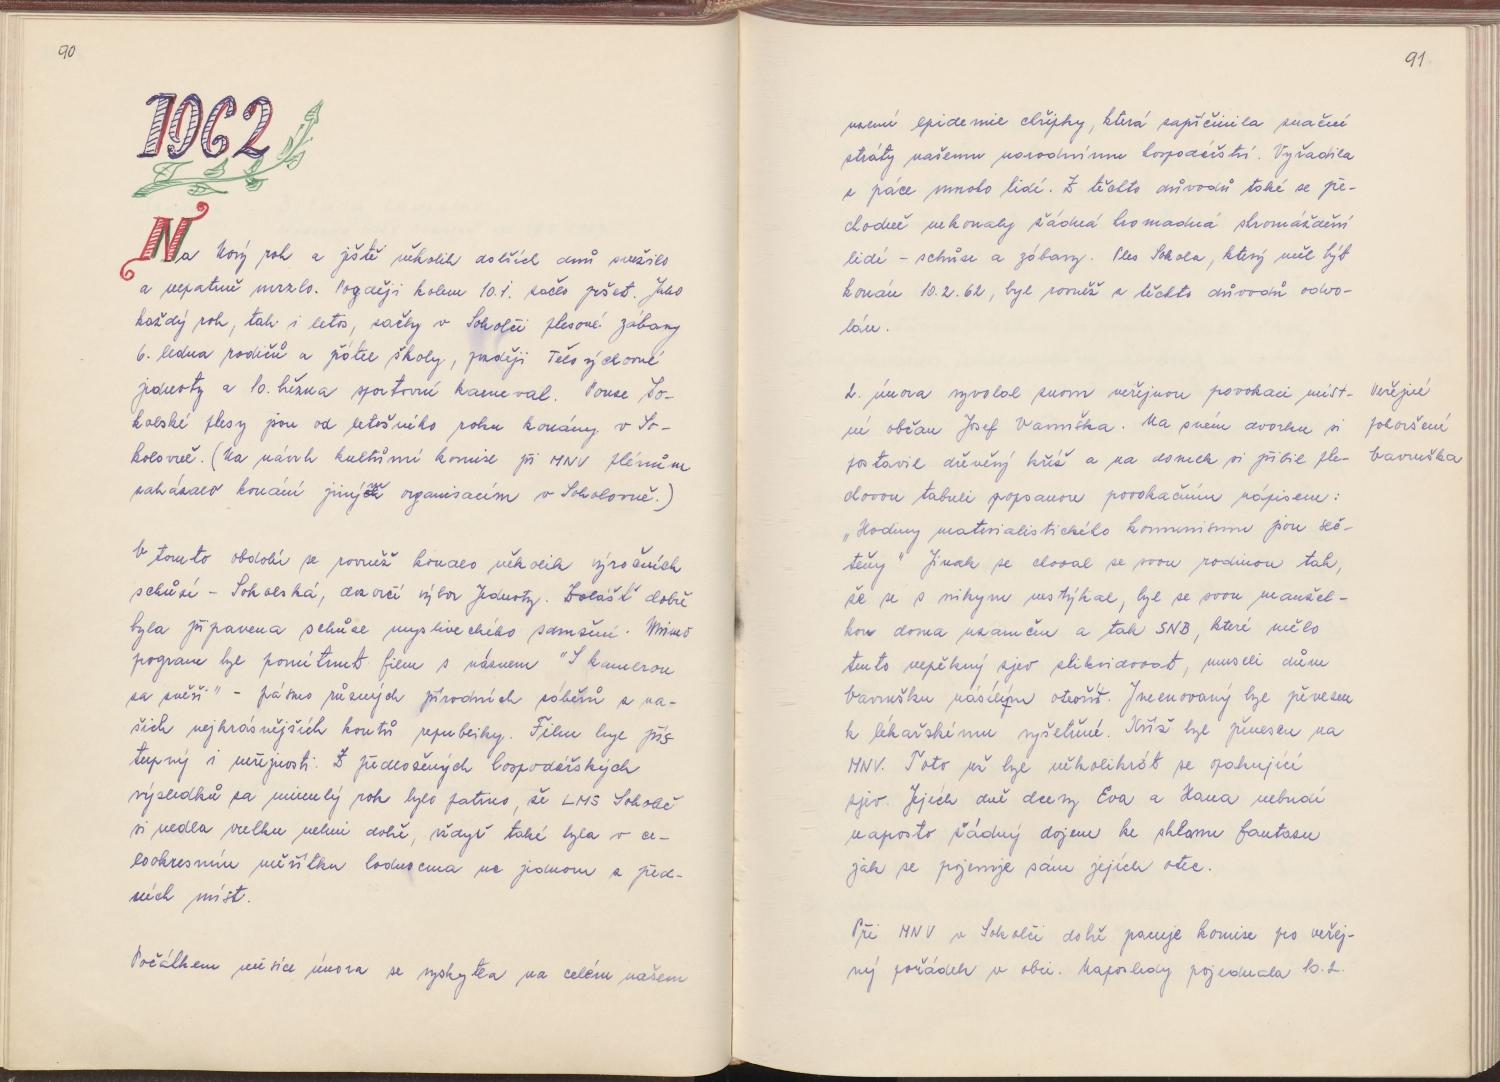 90
1962
Na Nový rok a ještě několik dalších dnů sněžilo
a nepatrně mrzlo. Později kolem 10.1. začlo pršet. Jako
každý rok, tak i letos, začly v Sokolči plesové zábavy
6. ledna rodičů a přátel školy, později Tělovýchovné
jednoty a 10. března sportovní karneval. Pouze So-
kolské plesy jsou od letošního roku konány v So-
kolovně. (Na návrh kulturní komise při MNV plénum
zakázalo konání jiných organisacím v Sokolovně.)
V tomto období se rovněž konalo několik výročních
schůzí - Sokolská, dozorčí výbor Jednoty. Zvlášť dobře
byla připravena schůze mysliveckého sdružení. Mimo
program byl promítnut film s názvem "S kamerou
za zvěří" - pásmo různých přírodních záběrů z na-
šich nejkrásnějších koutů republiky. Film byl přís
tupný i veřejnosti. Z předložených hospodářských
výsledků za minulý rok bylo patrno, že LMS Sokoleč
si vedla velku velmi dobře, vždyť také byla v ce-
lookresním měřítku hodnocena na jednom z před-
ních míst.
Počátkem měsíce února se vyskytla na celém našem
91
území epidemie chřipky, která zapříčinila značné
ztráty našemu národnímu hospodářství. Vyřadila
z práce mnoho lidí. Z těchto důvodů také se pře-
chodně nekonaly žádná hromadná shromáždění
lidí - schůze a zábavy. Ples Sokola, který měl být
konán 10.2.62, byl rovněž z těchto důvodů odvo-
lán.
2. února vyvolal znovu veřejnou provokaci míst-
ní občan Josef Vavruška. Na svém dvorku si
postavil dřevěný kříž a na domek si přibil ple-
chovou tabuli popsanou provokačním nápisem:
„Hodiny materialistického komunismu jsou seč-
teny" Jinak se choval se svou rodinou tak,
že se s nikým nestýkal, byl se svou manžel-
kou doma uzamčen a tak SNB, které mělo
tento nepěkný zjev zlikvidovat, museli dům
Vavrušku násilím otevřít. Jmenovaný byl převezen
k lékařskému vyšetření. Kříž byl přenesen na
MNV. Toto už byl několikrát se opakující
zjev. Jejich dvě dcery Eva a Hana nebudí
naprosto žádný dojem ke sklonu fantasu
jak se pojmenuje sám jejich otec.
Veřejné
pohoršení
Vavruška
Při MNV v Sokolči dobře pracuje komise pro veřej-
ný pořádek v obci. Naposledy pojednala 10.2.